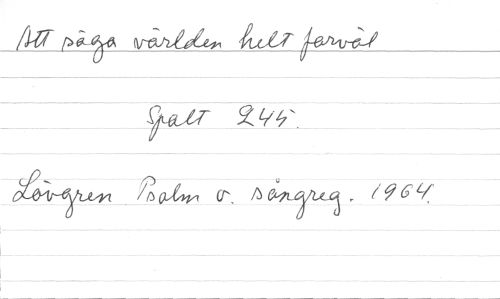 Att säga världen helt farväl
Spalt 245.
Lövgren Psalm o. sångreg. 1964.